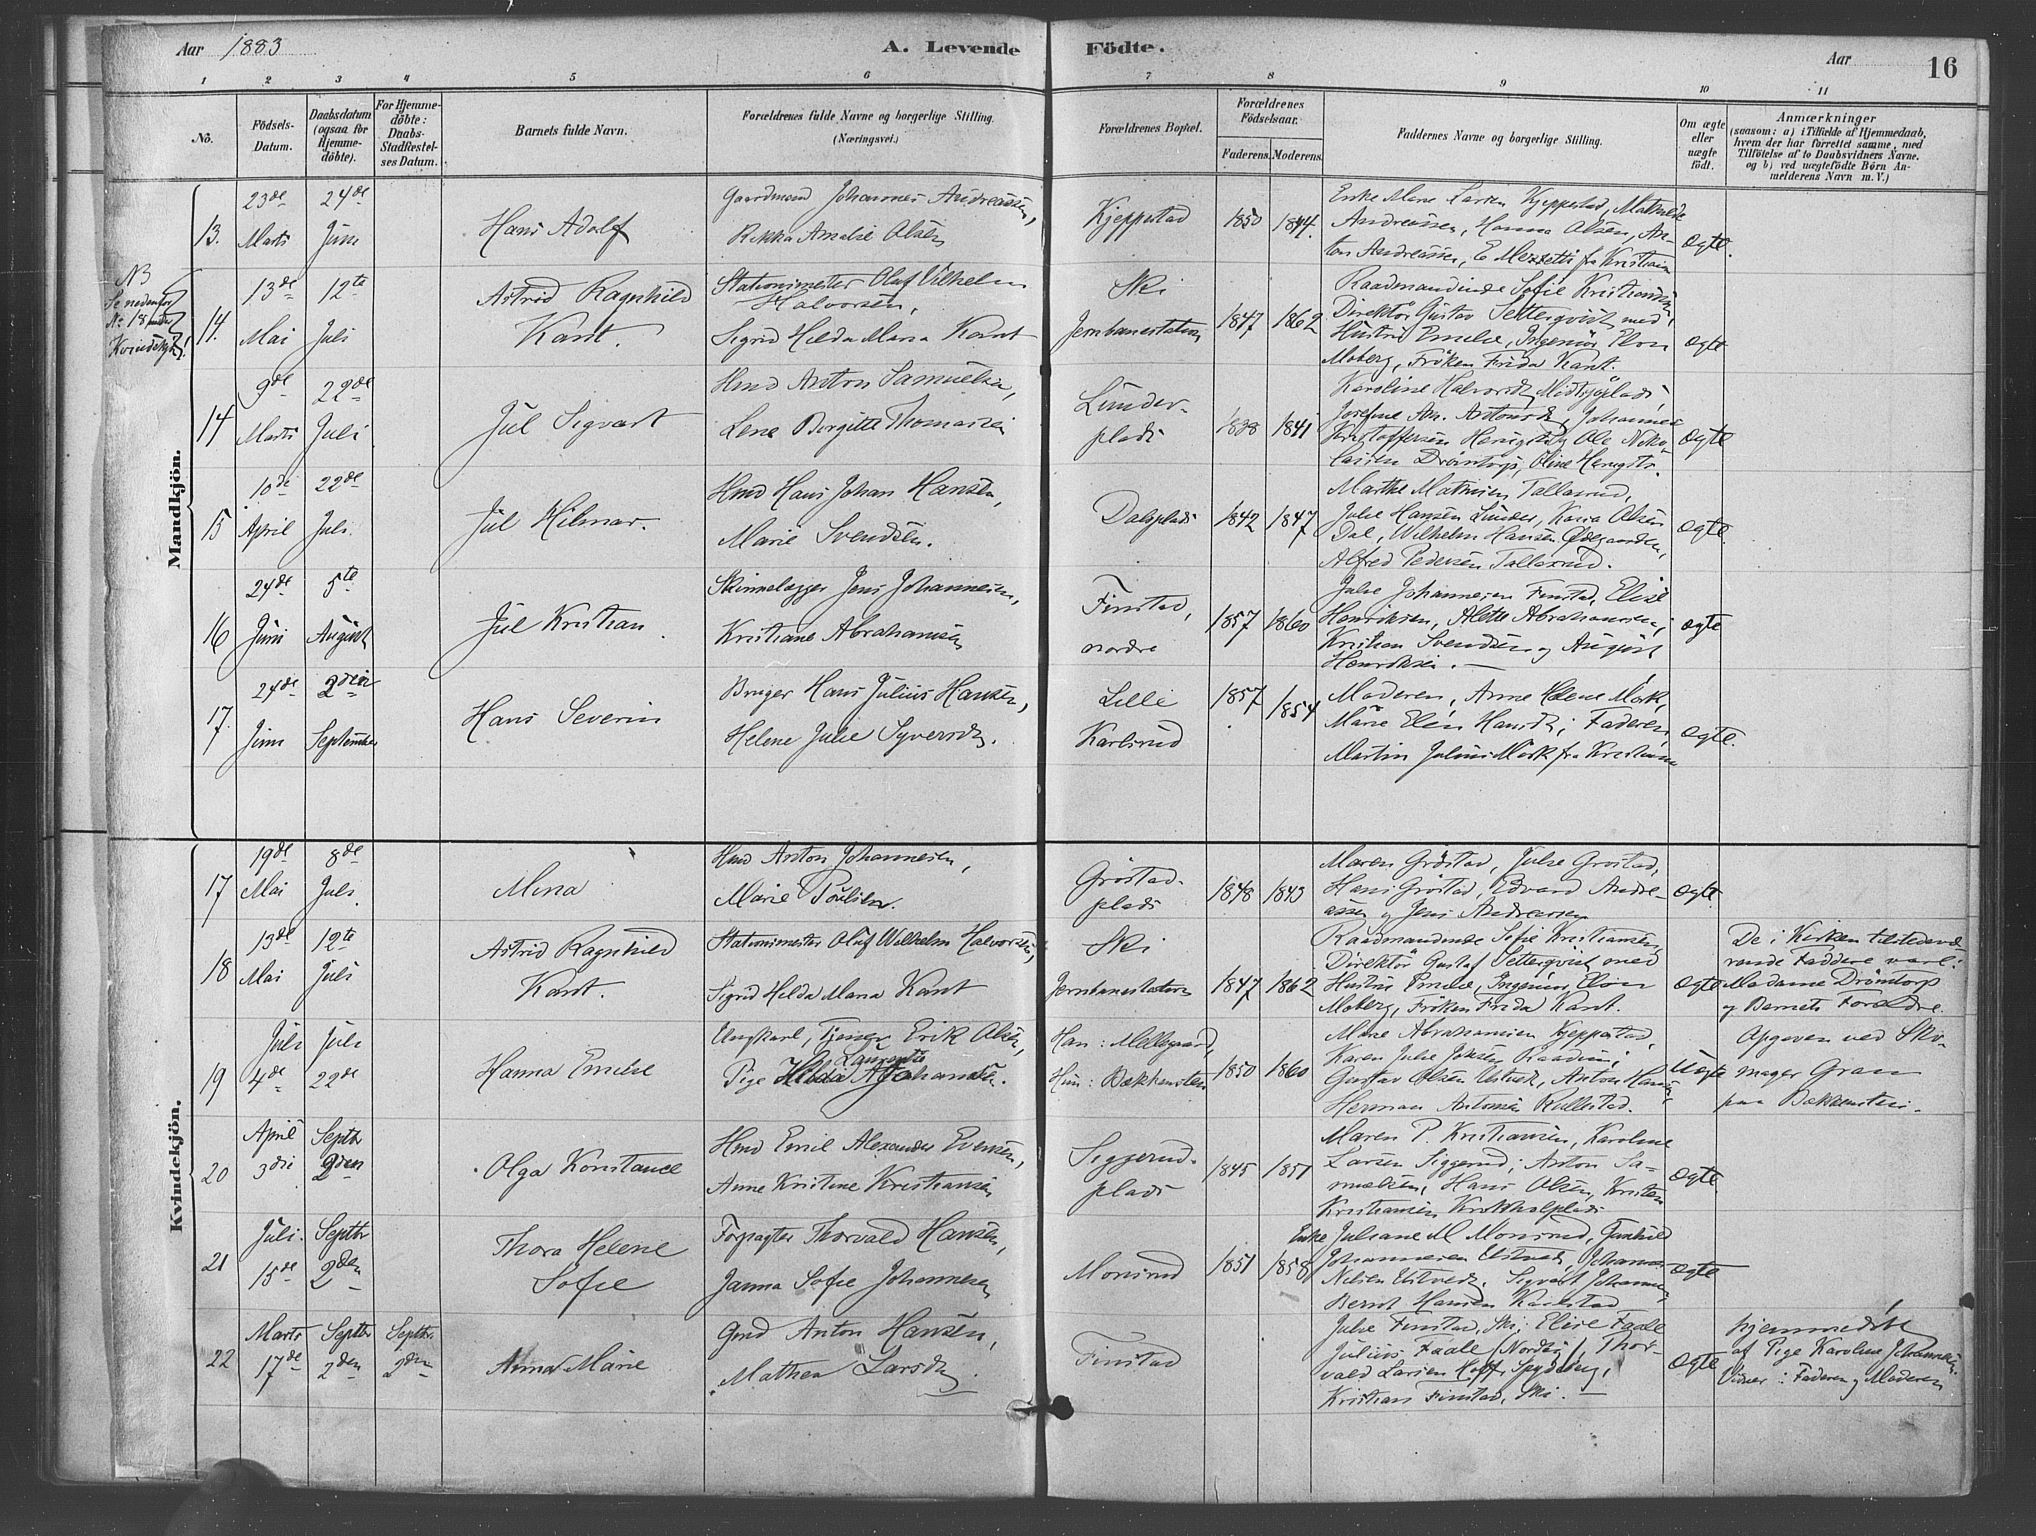 Aar 1883
A. Levende
Födte.
Aar
16
1 2 3 4 5 6 7 8 9 10 11
No.
Födsels-
Datum.
Daabsdatum
(ogsaa for
Hjemme-
döbte).
For Hjemme-
döbte:
Daabs-
Stadfæstel-
ses Datum.
Barnets fulde Navn.
Forældrenes fulde Navne og borgerlige Stilling.
(Næringsvei.)
Forældrenes Bopæl.
Forældrenes
Födselsaar.
Faderens. Moderens.
Faddernes Navne og borgerlige Stilling.
Om ægte
eller
uægte
födt.
Anmærkninger
(saasom: a) i Tilfælde af Hjemmedaab,
hvem der har forrettet samme, med
Tilföielse af to Daabsvidners Navne.
og b) ved uægtefödte Börn An-
melderens Navn m. V.)
Mandkjön.
13.
23de
Marts
24de
Juni
Hans Adolf
Gaardmand Johannes Andreassen,
Rikka Amalie Olsen
Kjeppestad
1850 1844.
Enke Maren Larsen Kjeppestad, Mathilde
Andreassen, Hanna Olsen, An-
ton Andreassen, E. fra Kristiania
Ægte.
NB
Se nedenfor
No. 18 under
Kvindekjøn!
14.
13de
Mai
12te
Juli
Astrid Ragnhild
Kant.
Stationsmester Oluf Vilhelm
Halvorsen,
Sigrid Hilda Maria Kant
Ski
Jernbanestation
1847 1862
Raadmandinde Sofie Kristiansen,
Direktör Gustav Setterqvist med
Hustru Emelie, Ingeniör Elon
Moberg, Fröken Frida Kant.
Ægte
14
9de
Marts
22de
Juli
Jul Sigvart
Hmd Anton Samuelsen,
Lene Birgitte Thomassen
Lunder-
plads
1838 1841
Karoline Halvorsd. Midtsjöplads,
Josefine An. Antonsd, Johannes
Kristoffersen Haugstd, Ole Niko-
laisen Drömtorp, Oline Haugstd.
Ægte
15
10de
April
22de
Juli.
Jul Hilmar.
Hmd Hans Johan Hansen,
Marie Svendsen.
Dalsplads
1842 1847
Marthe Mathisen Tallaxrud,
Julie Hansen Lunder, Karia Olsen
Dal, Wilhelm Hansen Ødegaarden,
Alfred Pedersen Tallaxrud.
Ægte.
16
24de
Juni
5te
August
Jul Kristian.
Skinnelægger Jens Johannesen,
Kristiane Abrahamsen
Finstad,
nordre
1857 1860
Julie Johannesen Finstad, Elise
Henriksen, Alette Abrahamsen,
Kristian Svendsen og August
Henriksen.
Ægte
17.
24de
Juni
2den
September
Hans Severin
Bruger Hans Julius Hansen,
Helene Julie Syversd.
Lille
Karlsrud
1857 1854
Moderen, Anne Helene Mörk,
Marie Elen Hansd; Faderen,
Martin Julius Mörk fra Kristiania
Ægte.
Kvindekjön.
17
19de
Mai
8de
Juli.
Mina
Hmd Anton Johannesen,
Marie Poulsen.
Gröstad-
plads
1848 1843
Maren Gröstad, Julie Gröstad,
Hans Gröstad, Edvard Andre-
assen og Jens Andreassen
Ægte.
18
13de
Mai
12te
Juli
Astrid Ragnhild
Kant.
Stationsmester Oluf Wilhelm Halvorsen,
Sigrid Hilda Maria Kant
Ski
Jernbanestation
1847 1862
Raadmandinde Sofie Kristiansen,
Direktör Gustaf Setterqvist med
Hustru Emelie, Ingeniör Elon
Moberg, Fröken Frida Kant.
Ægte
De i Kirken tilstedevæ-
rende Faddere vare:
Madame Drömtorp
og Barnets Forældre.
19
Juli
4de
Juli
22de
Hanna Emelie
Ungkarl, Tjener Erik Olsen,
Pige Laurentse Johansen.
Han: Mellegaard,
Hun: Bækkensten
1850 1860
Marie Abrahamsen Kjeppestad,
Karen Julie Raadim;
Gustav Olsen, Anton Hansen,
Herman Antonsen Kullestad.
Uægte
Opgiven ved Sko-
mager Gran
paa Bækkensten.
20
April
3die
Septbr
2den
Olga Konstance
Hmd Emil Alexander Evensen,
Anne Kristine Kristiansen
Siggerud-
plads
1845 1851
Maren P. Kristiansen, Karoline
Larsen Siggerud; Anton Sa-
muelsen, Hans Olsen, Kristen
Kristiansen Krokholplads
Ægte.
21
Juli.
15de
Septbr
2den
Thora Helene
Sofie
Forpagter Thorvald Hansen,
Janna Sofie Johannesen
Monsrud
1851 1858
Enke Juliane M Monsrud, Gunhild
Johannesen Elstved, Johannes
Nilsen Elstvedt, Sigvart Johannesen,
Bernt Hansen
Ægte
22
Marts
17de
Septbr
2den
Septbr.
2den
Anna Marie
Gmd Anton Hansen,
Mathea Larsd.
Finstad
Julie Finstad, Ski; Elise Faale
Julius Faale (Nordby), Thor-
vald Larsen Spydeberg,
Kristian Finstad, Ski.
Ægte
hjemmedöbt
af Pige Karoline Johannesen
Vidner: Faderen og Moderen